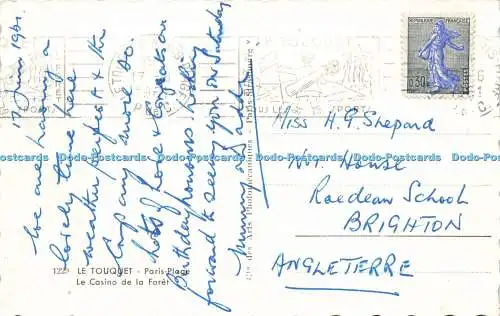 17 June 1961.
We are having a
lovely time here
weather perfect & the
Cap any more so.
Lots of love & Greatson
Birthday honours looking
forward to seeing you on Saturday
Mummy & Daddy
1229 LE TOUQUET - Paris-Plage
Le Casino de la Forêt
Cie des Arts Photomécaniques - Paris-Strasbourg
REPUBLIQUE FRANÇAISE
0,30
POSTES
Miss H. G. Shepard
No 1 House
Roedean School
BRIGHTON
ANGLETERRE
Dodo-Postcards Dodo-Postcards Dodo-Postcards Dodo-Postcards